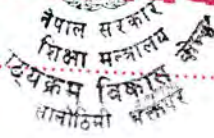 नेपाल सरकार
शिक्षा मन्त्रालय
ट्यक्रम विकास केन्द्र
सानोठिमी भक्तपुर